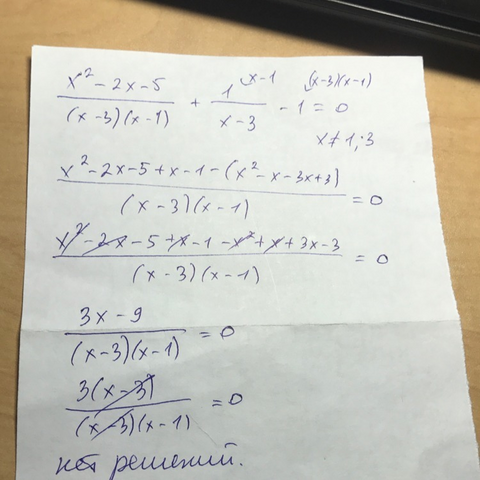 x² - 2x - 5 / (x - 3)(x - 1) + 1 ^(x - 1) / x - 3 - 1 ^((x-3)(x-1)) = 0
x ≠ 1; 3
x² - 2x - 5 + x - 1 - (x² - x - 3x + 3) / (x - 3)(x - 1) = 0
x² - 2x - 5 + x - 1 - x² + x + 3x - 3 / (x - 3)(x - 1) = 0
3x - 9 / (x - 3)(x - 1) = 0
3(x - 3) / (x - 3)(x - 1) = 0
нет решений.